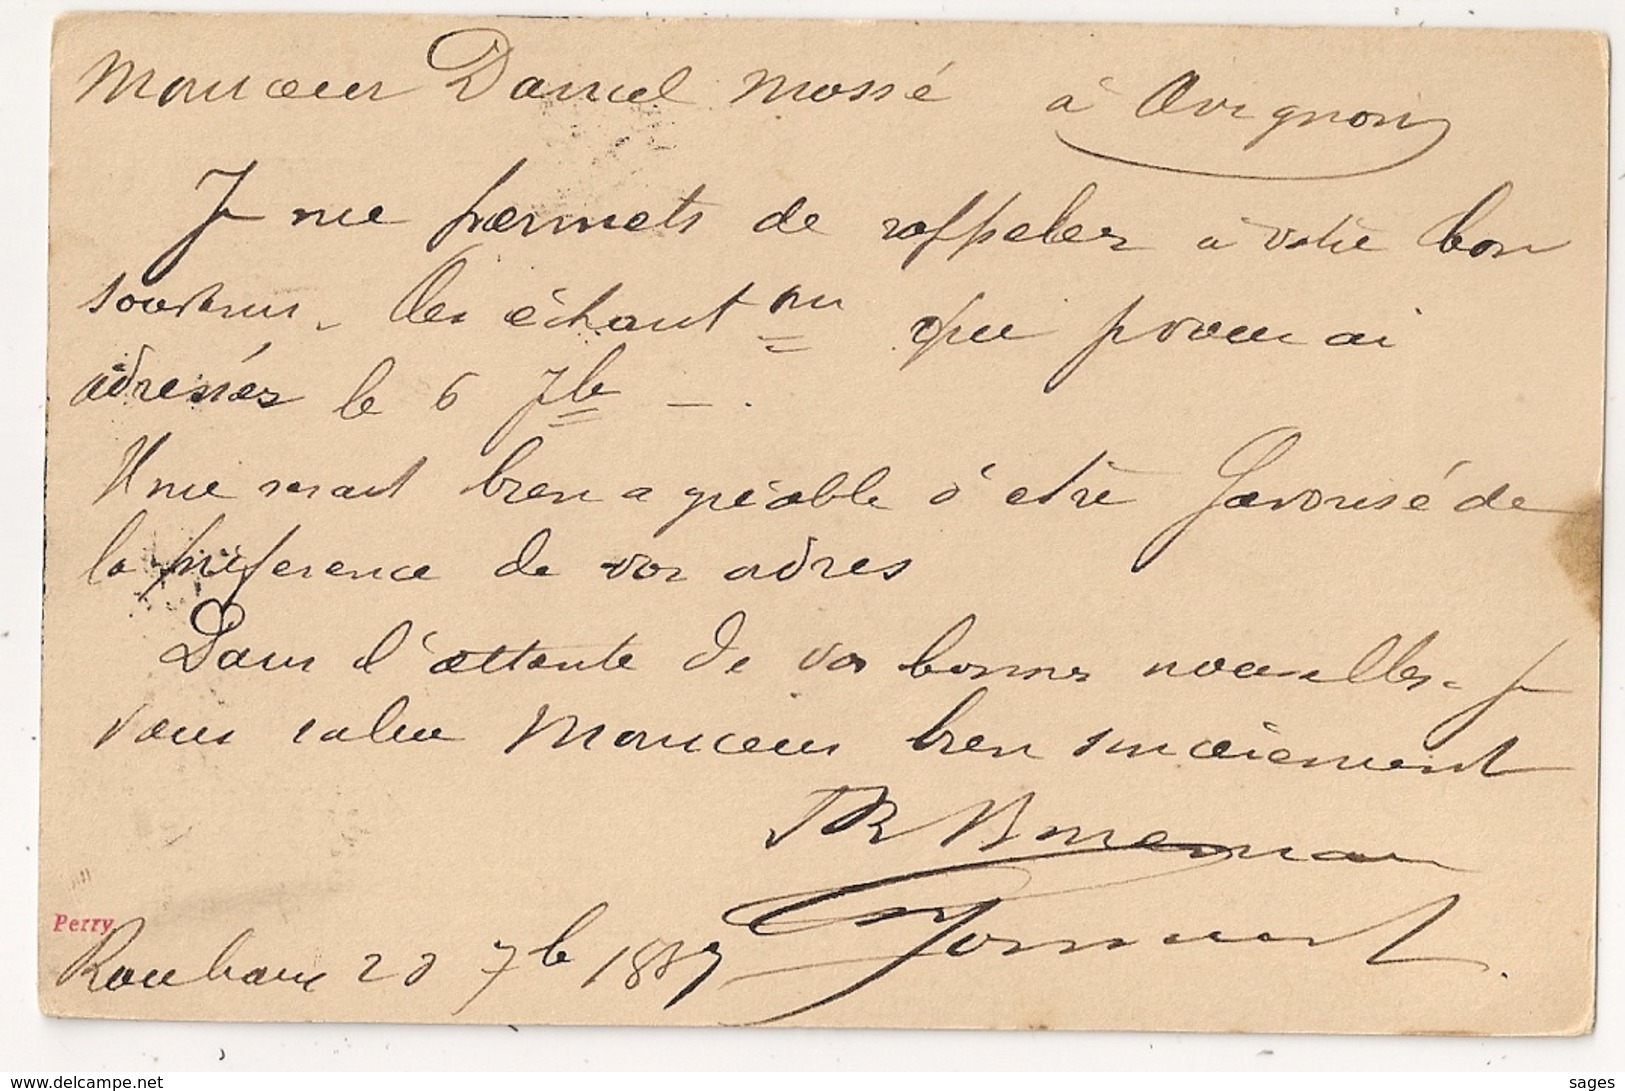 Monsieur Daniel Mossé à Avignon
Je me permets de rappeler à votre bon
souvenir. les échant ons que je vous ai
adressés le 6 7bre
Il me serait bien agréable d'être favorisé de
la préférence de vos ordres
Dans l'attente de vos bonnes nouvelles. Je
vous salue Monsieur bien sincèrement
Perry
Roubaix 23 7b 1887
www.delcampe.net
sages